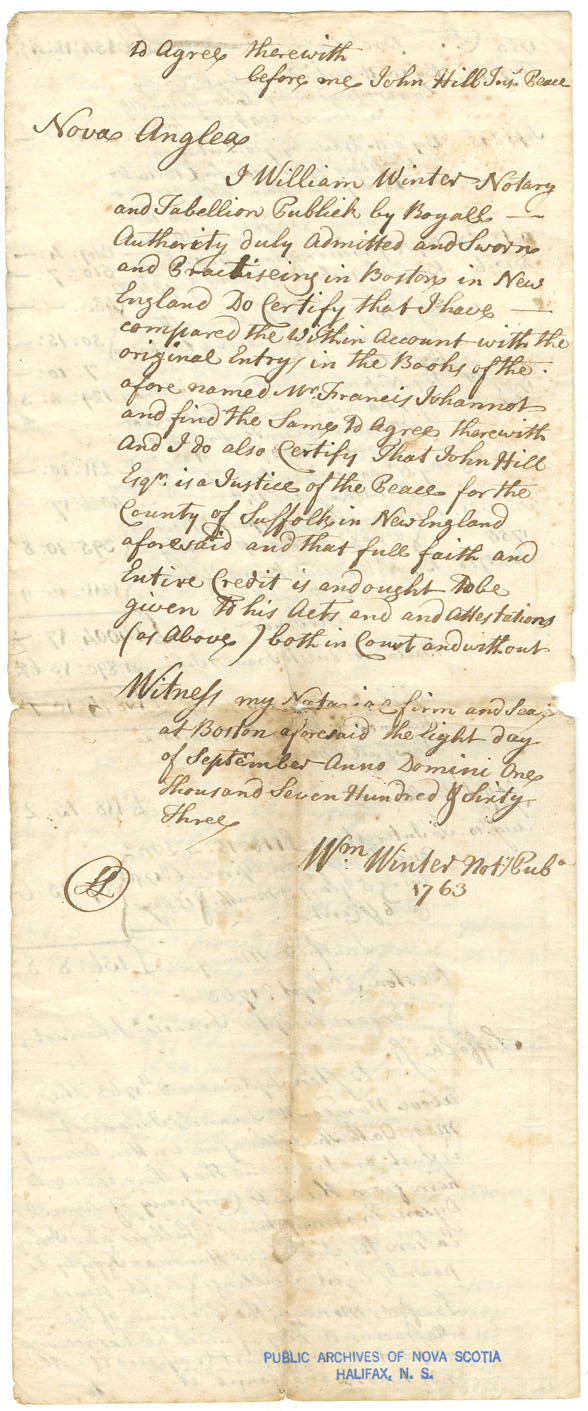 to Agree therewith
before me John Hill Jus. Peace
Nova Anglea
I William Winter Notary
and Tabellion Publick by Royall
Authority duly Admitted and Sworn
and Practiseing in Boston in New
England Do Certify that I have
compared the Within Account with the
original Entry in the Books of the
afore named Mr. Francis Johannot
and find the Same to Agree therewith
And I do also Certify That John Hill
Esqr. is a Justice of the Peace for the
County of Suffolk in New England
aforesaid and that full faith and
Entire Credit is and ought to be
given to his Acts and and Attestations
(as Above) both in Court and without
Witness my Notarial firm and Seal
at Boston aforesaid the Eight day
of September Anno Domini One
thousand Seven Hundred & Sixty
three
Wm Winter Noty Pub
1763
PUBLIC ARCHIVES OF NOVA SCOTIA
HALIFAX, N. S.